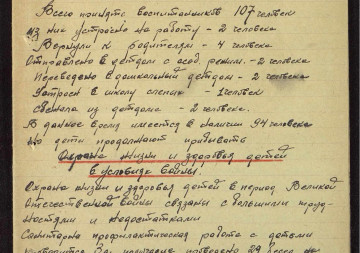 Всего принято воспитанников 107 человек
из них устроено на работу - 2 человека
Вернули к родителям - 4 человека
Отправлено в детдом с особ. режим. - 2 человека
Переведено в дошкольный детдом - 2 человека
в школу слепых - 1 человек
из детдома - 2 человека.
В данное время имеется в наличии 94 человека
но дети продолжают прибывать
Охрана жизни и здоровья детей
в условиях войны.
Охрана жизни и здоровья детей в период Великой
Отечественной войны связаны с большими труд-
ностями и недостатками
Санитарно профилактическая работа с детьми
проведено 29 бесед на